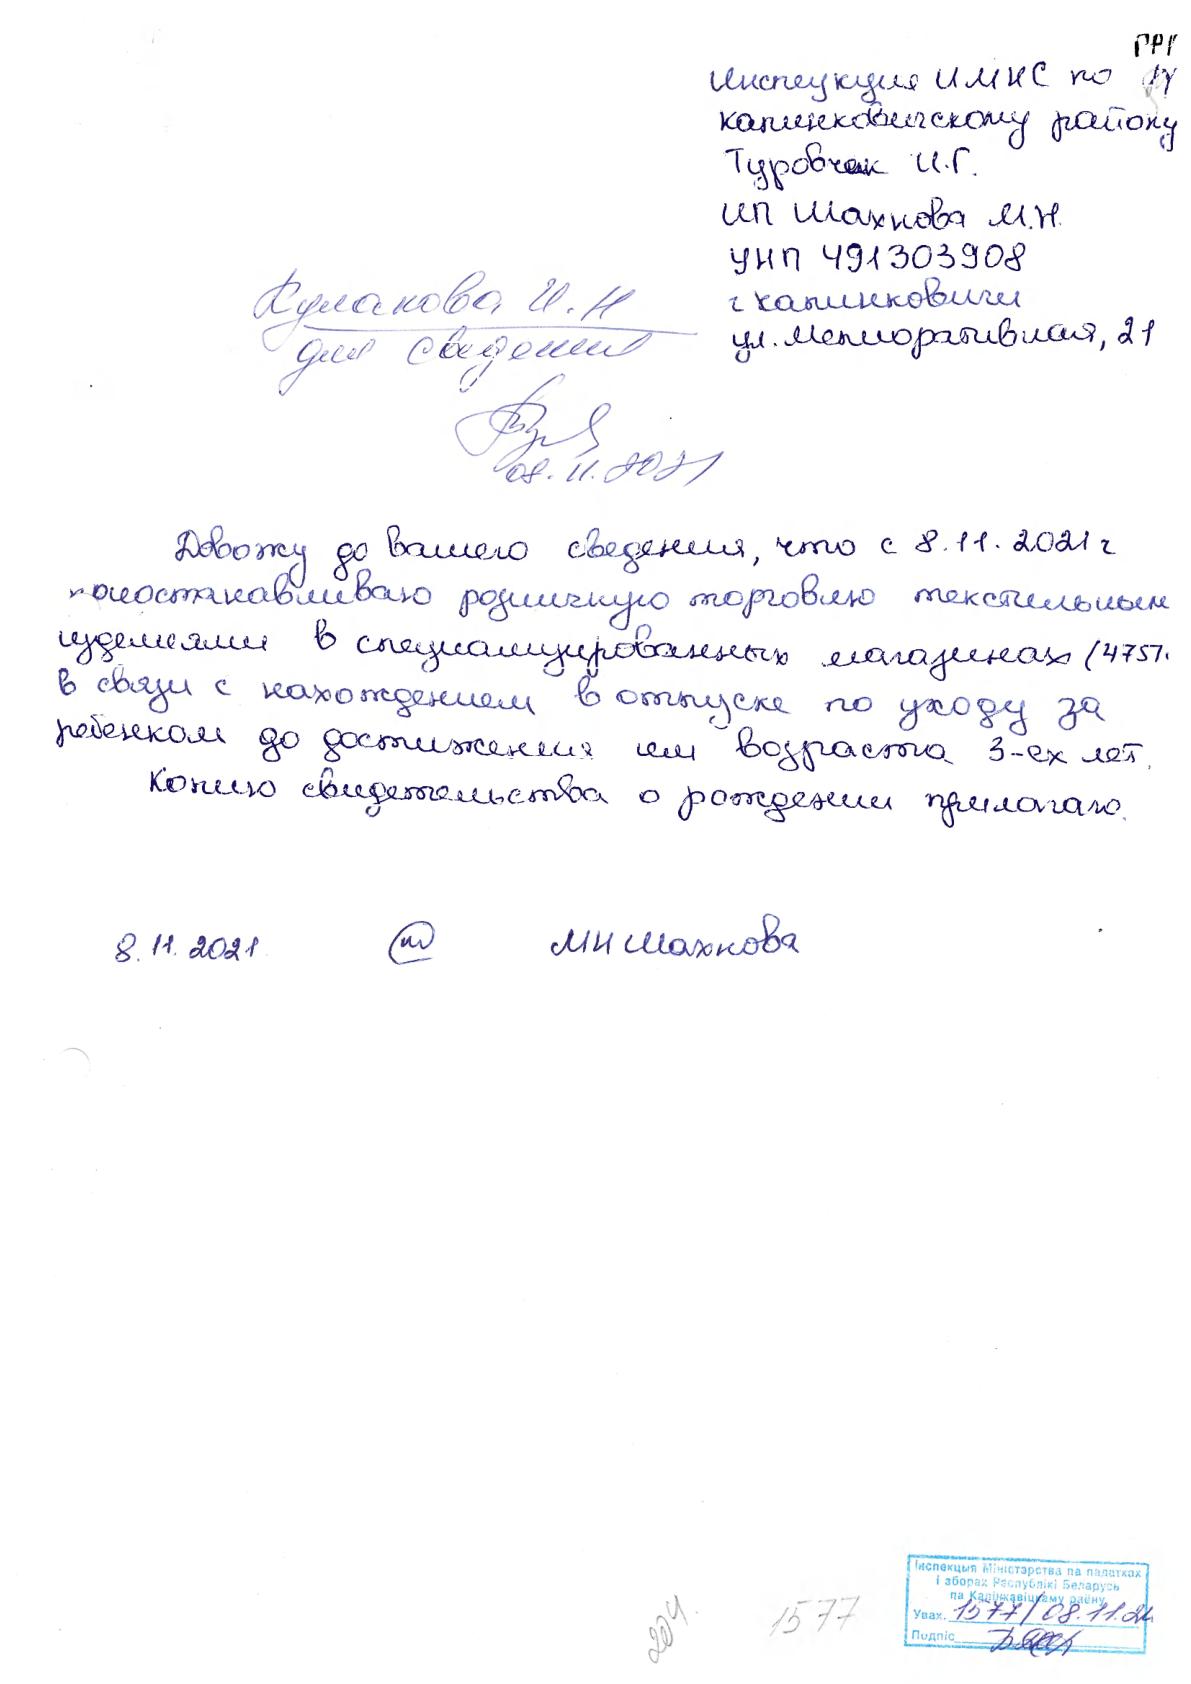 Инспекция ИМНС по
Калинковичскому району
Туровчак И.Г.
ИП Шахнова М.Н.
УНП 491303908
г Калинковичи
ул. Мелиоративная, 21
Кулакова И.Н
для сведения
08.11.2021
Довожу до вашего сведения, что с 8.11.2021 г
приостанавливаю розничную торговлю текстильными
изделиями в специализированных магазинах (4751
в связи с нахождением в отпуске по уходу за
ребенком до достижения им возраста 3-ех лет.
Копию свидетельства о рождении прилагаю.
8.11.2021 МН Шахнова
Інспекцыя Міністэрства па падатках
і зборах Рэспублікі Беларусь
па Калінкавіцкаму раёну
Увах. 1577/08.11.21
Подпіс
204. 1577